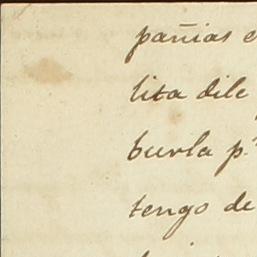 pañias e
lita dile
burla p.r
tengo de